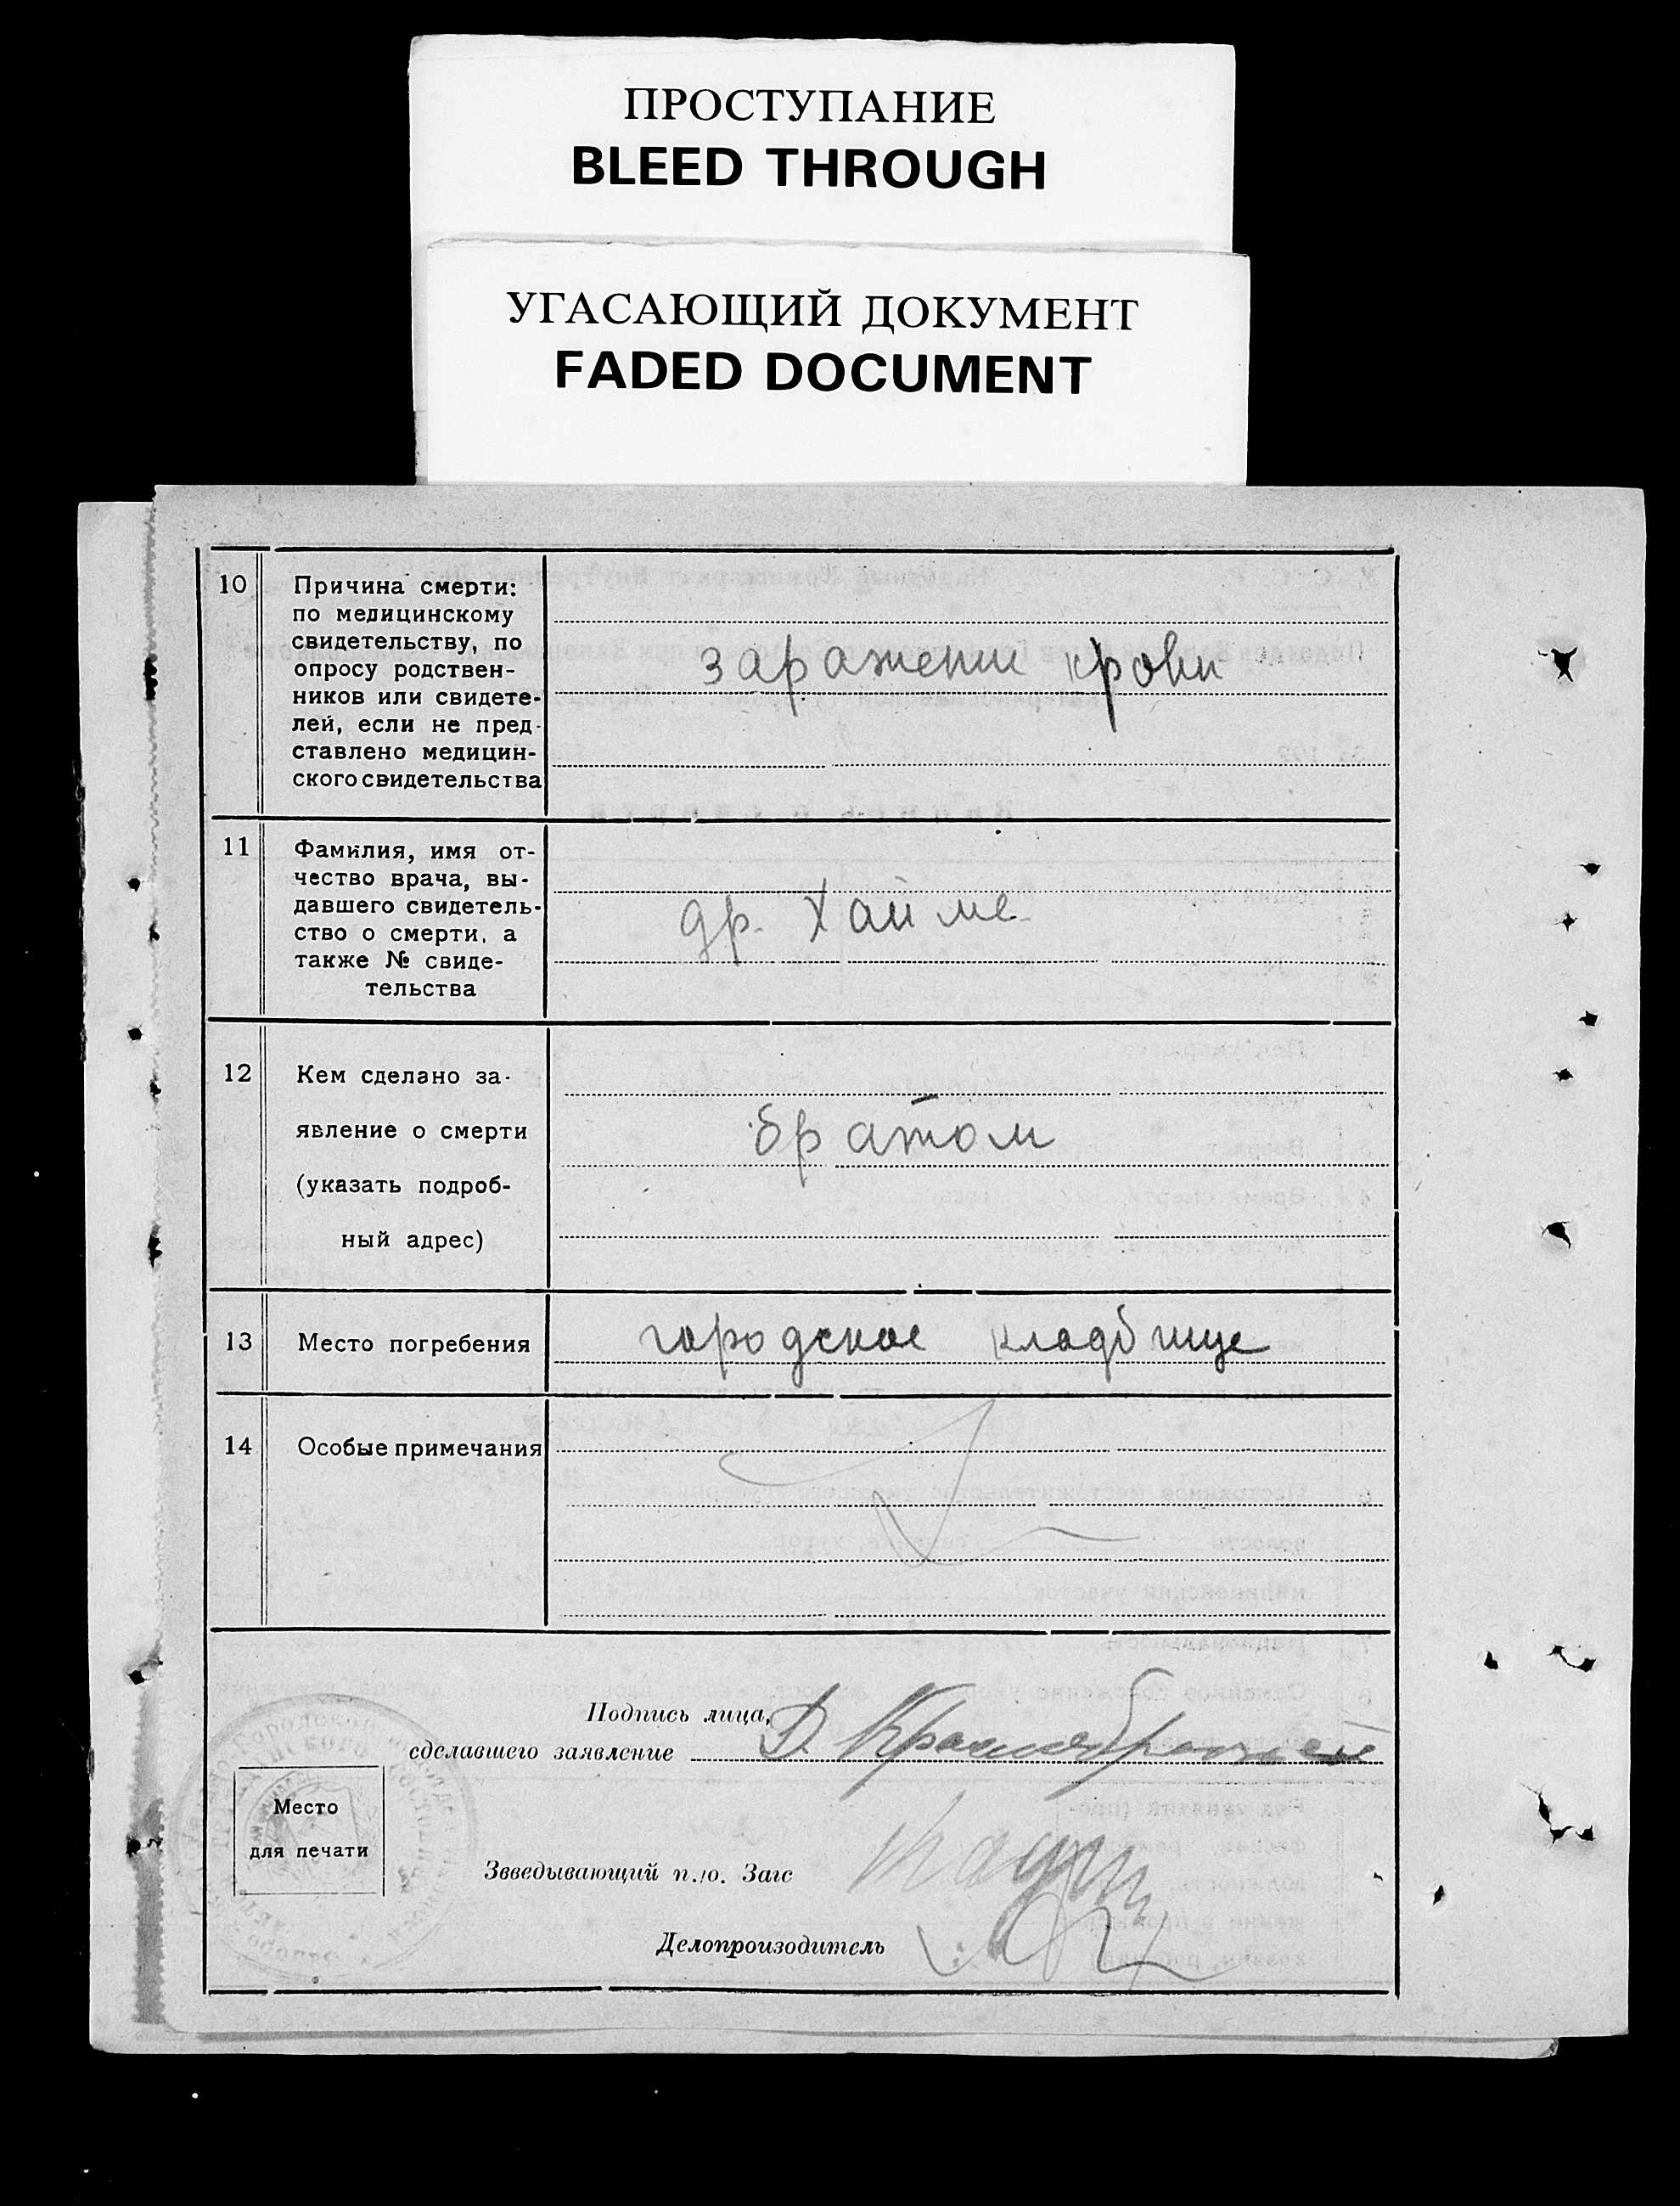 ПРОСТУПАНИЕ
BLEED THROUGH
УГАСАЮЩИЙ ДОКУМЕНТ
FADED DOCUMENT
10
Причина смерти:
по медицинскому
свидетельству, по
опросу родствен-
ников или свидете-
лей, если не пред-
ставлено медицин-
ского свидетельства
заражении крови
11
Фамилия, имя от-
чество врача, вы-
давшего свидетель-
ство о смерти, а
также № свиде-
тельства
др. Хайме
12
Кем сделано за-
явление о смерти
(указать подроб-
ный адрес)
братом
13
Место погребения
городское кладбище
14
Особые примечания
Подпись лица,
сделавшего заявление
Д.
Место
для печати
Звведывающий п./о. Загс
Делопроизодитель